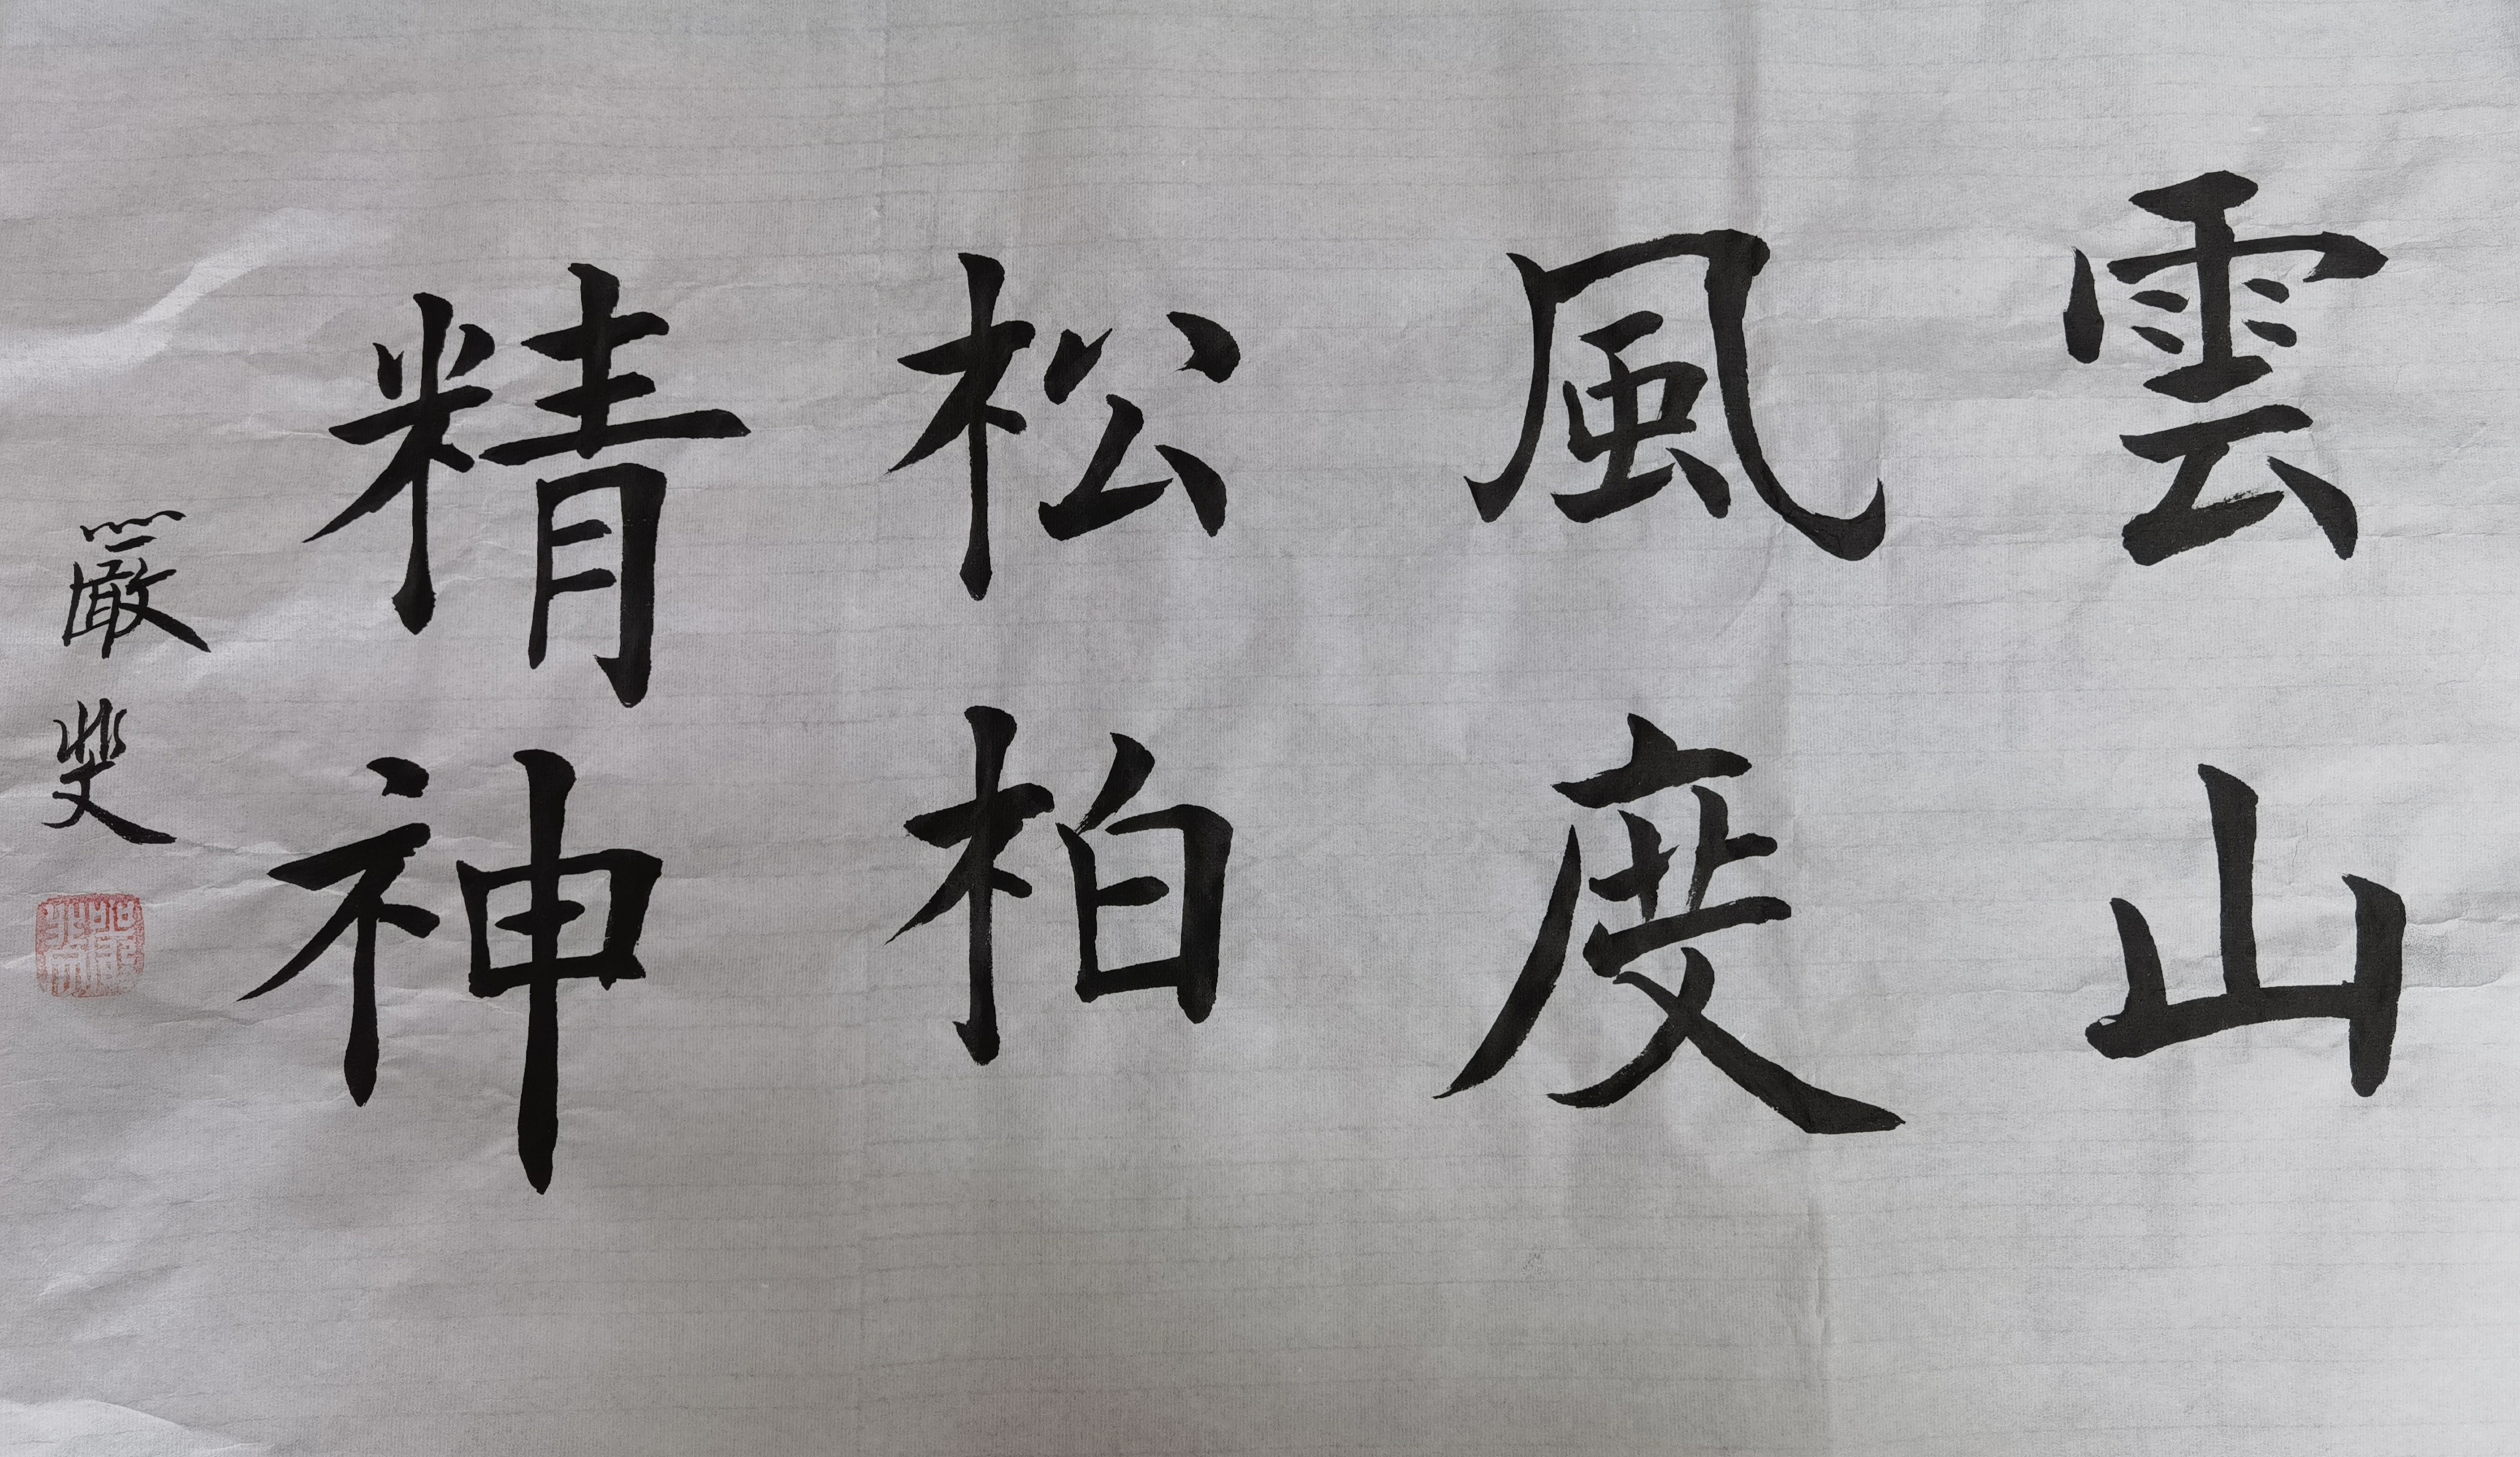 雲山
風度
松柏
精神
嚴斐